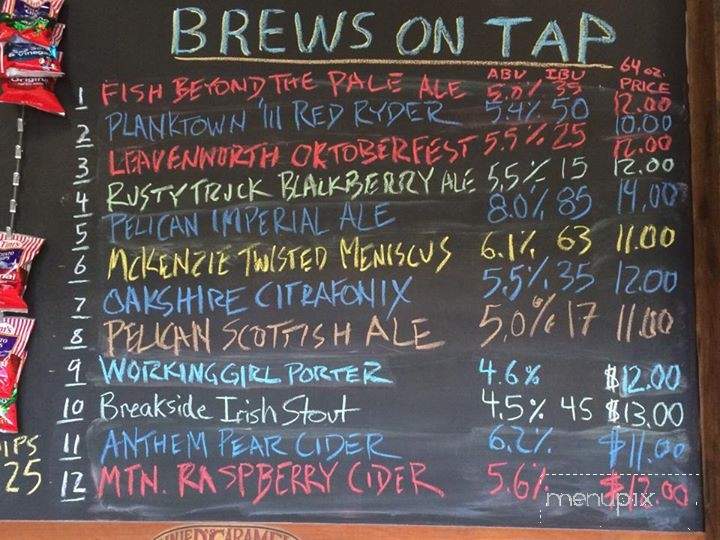 BREWS ON TAP
ABV IBU 64 oz. PRICE
1 FISH BEYOND THE PALE ALE 5.0% 35 12.00
2 PLANKTOWN '111 RED RYDER 5.4% 50 10.00
3 LEAVENWORTH OKTOBERFEST 5.5% 25 12.00
4 RUSTY TRUCK BLACKBERRY ALE 5.5% 15 12.00
5 PELICAN IMPERIAL ALE 8.0% 85 14.00
6 MCKENZIE TWISTED MENISCUS 6.1% 63 11.00
7 OAKSHIRE CITRAFONIX 5.5% 35 12.00
8 PELICAN SCOTTISH ALE 5.0% 17 11.00
9 WORKING GIRL PORTER 4.6% $12.00
10 Breakside Irish Stout 4.5% 45 $13.00
11 ANTHEM PEAR CIDER 6.2% $11.00
12 MTN. RASPBERRY CIDER 5.6% $12.00
25
menupix